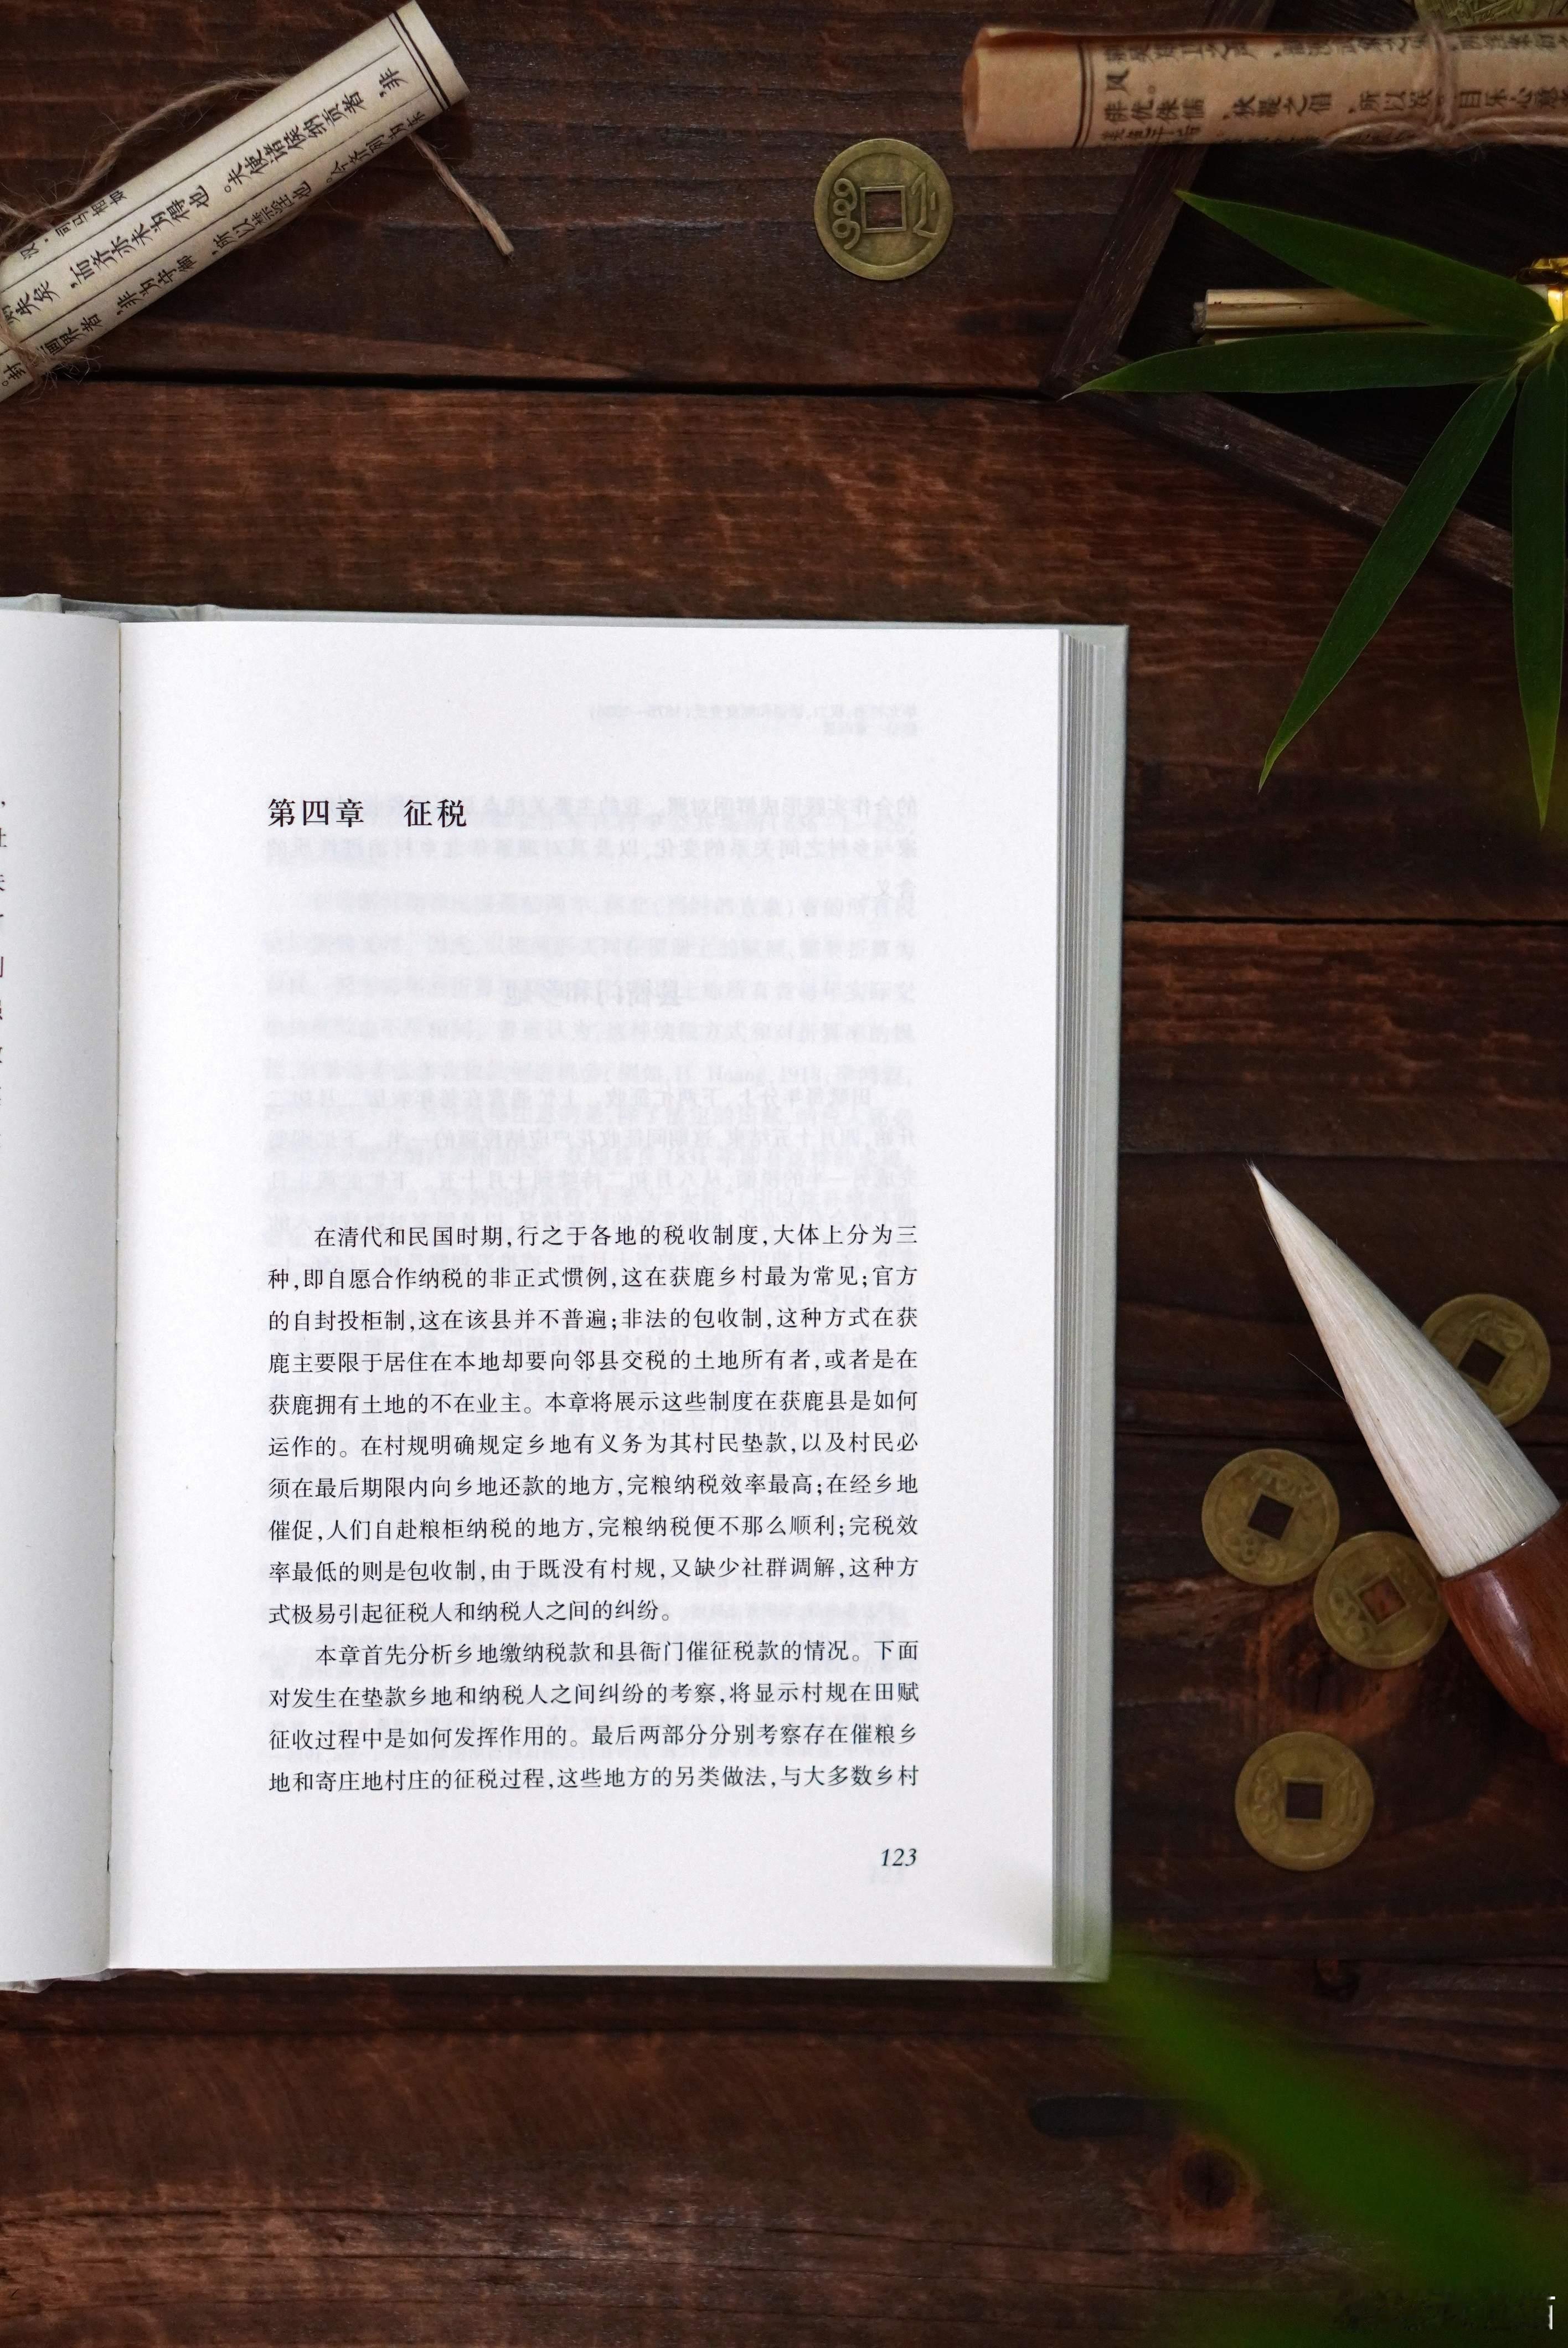 汉·司马相如
而齐亦未为得也 。夫使诸侯纳贡者 ,非
封疆画界者 ,非为守御 ,所以禁淫也 。今齐列为东
俳优。侏儒
第四章 征税
在清代和民国时期,行之于各地的税收制度,大体上分为三
种,即自愿合作纳税的非正式惯例,这在获鹿乡村最为常见;官方
的自封投柜制,这在该县并不普遍;非法的包收制,这种方式在获
鹿主要限于居住在本地却要向邻县交税的土地所有者,或者是在
获鹿拥有土地的不在业主。本章将展示这些制度在获鹿县是如何
运作的。在村规明确规定乡地有义务为其村民垫款,以及村民必
须在最后期限内向乡地还款的地方,完粮纳税效率最高;在经乡地
催促,人们自赴粮柜纳税的地方,完粮纳税便不那么顺利;完税效
率最低的则是包收制,由于既没有村规,又缺少社群调解,这种方
式极易引起征税人和纳税人之间的纠纷。
本章首先分析乡地缴纳税款和县衙门催征税款的情况。下面
对发生在垫款乡地和纳税人之间纠纷的考察,将显示村规在田赋
征收过程中是如何发挥作用的。最后两部分分别考察存在催粮乡
地和寄庄地村庄的征税过程,这些地方的另类做法,与大多数乡村
123